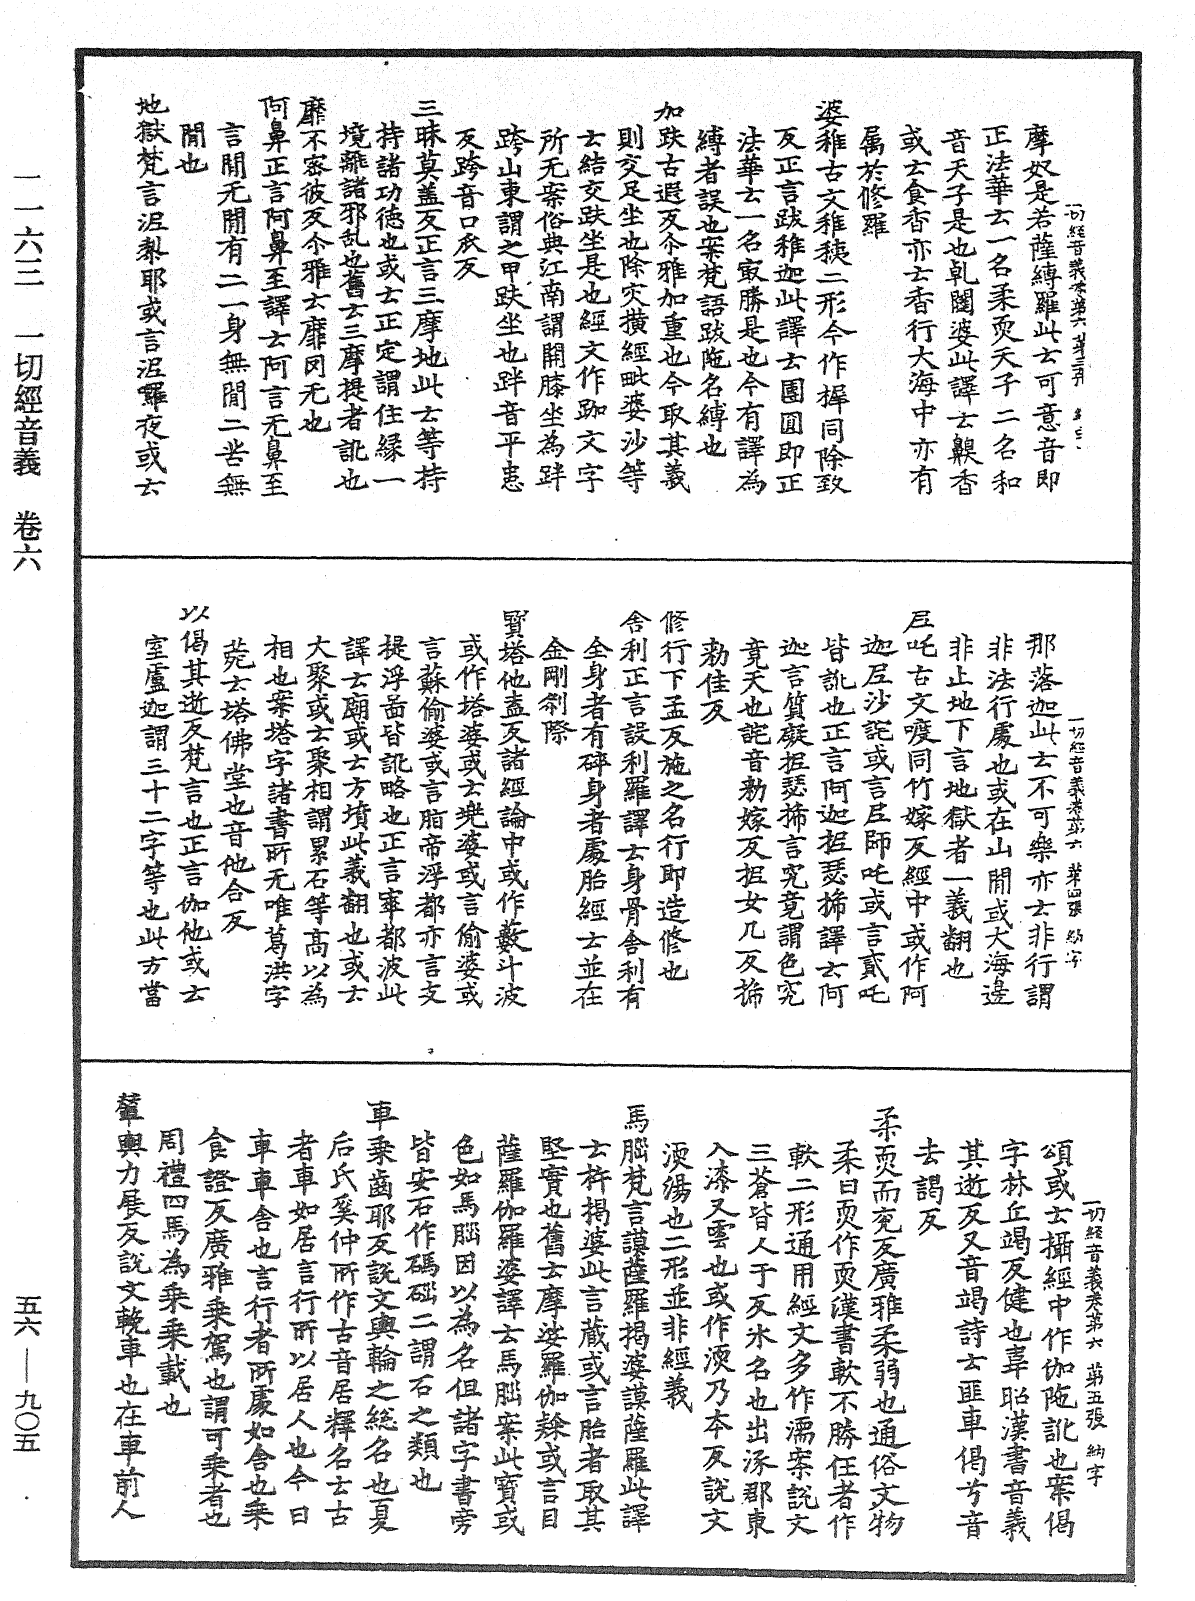 一一六三　一切經音義　卷六
一切經音義卷第六　第三張　納字
摩奴是若薩縛羅此云可意音即
正法華云一名柔耎天子二名和
音天子是也乹闥婆此譯云齅香
或云食香亦云香行大海中亦有
属於修羅
婆稚古文稚稺二形今作㨖同除致
反正言跋稚迦此譯云團圓即正
法華云一名㝡勝是也今有譯為
縛者誤也案梵語跋陁名縛也
加趺古遐反尒雅加重也今取其義
則交足坐也除灾橫經毗婆沙等
云結交趺坐是也經文作跏文字
所无案俗典江南謂開膝坐為跘
跨山東謂之甲趺坐也跘音平患
反跨音口瓜反
三昧莫盖反正言三摩地此云等持
持諸功德也或云正定謂住緣一
境離諸邪乱也舊云三摩提者訛也
靡不密彼反尒雅云靡罔无也
阿鼻正言阿鼻至譯云阿言无鼻至
言閒无閒有二一身無閒二苦無
閒也
地獄梵言泥梨耶或言泥羅夜或云
一切經音義卷第六　第四張　納字
那落迦此云不可樂亦云非行謂
非法行處也或在山閒或大海邊
非止地下言地獄者一義翻也
㞾吒古文㡯同竹嫁反經中或作阿
迦㞾沙託或言㞾師吒或言貳吒
皆訛也正言阿迦抳瑟搋譯云阿
迦言質礙抳瑟搋言究竟謂色究
竟天也詫音勑嫁反抳女几反搋
勑佳反
修行下孟反施之名行即造修也
舍利正言設利羅譯云身骨舍利有
全身者有碎身者處胎經云並在
金剛刹際
寳塔他盍反諸經論中或作藪斗波
或作塔婆或云兠婆或言偷婆或
言蘇偷婆或言脂帝浮都亦言支
提浮啚皆訛略也正言窣都波此
譯云廟或云方墳此義翻也或云
大聚或云聚相謂累石等高以為
相也案塔字諸書所无唯葛洪字
菀云塔佛堂也音他合反
以偈其逝反梵言也正言伽他或云
室盧迦謂三十二字等也此方當
一切經音義卷第六　第五張　納字
頌或云攝經中作伽陁訛也案偈
字林丘竭反健也韋昭漢書音義
其逝反又音竭詩云匪車偈兮音
去謁反
柔耎而兖反廣雅柔弱也通俗文物
柔曰耎作耎漢書軟不勝任者作
軟二形通用經文多作濡案說文
三蒼皆人于反水名也出涿郡東
入漆又霑也或作渜乃本反說文
渜湯也二形並非經義
馬腦梵言謨薩羅揭婆謨薩羅此譯
云杵揭婆此言藏或言胎者取其
堅實也舊云摩娑羅伽隸或言目
薩羅伽羅婆譯云馬腦案此寶或
色如馬腦因以為名但諸字書旁
皆安石作碼碯二謂石之類也
車乘齒耶反說文輿輪之総名也夏
后氏奚仲所作古音居釋名云古
者車如居言行所以居人也今曰
車車舍也言行者所處如舍也乘
食證反廣雅乘駕也謂可乘者也
周禮四馬為乘乘載也
輦輿力展反說文輓車也在車前人
五六—九〇五